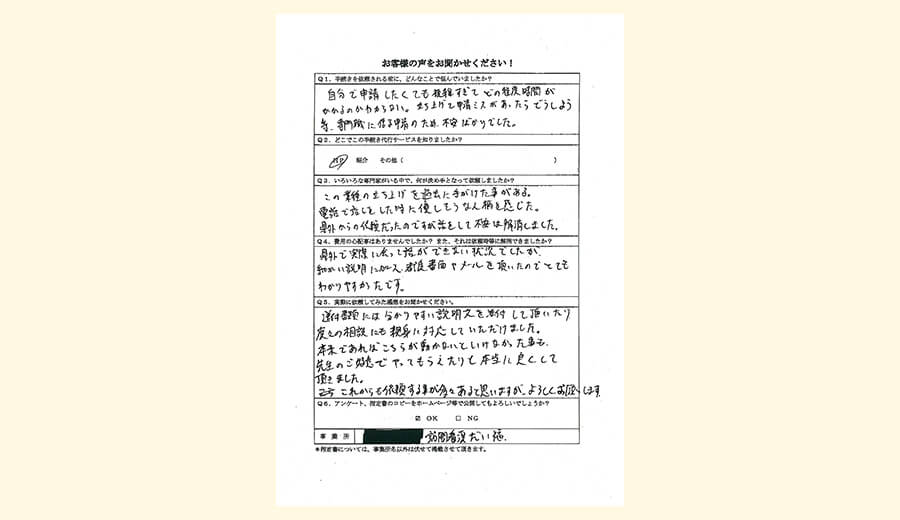 お客様の声をお聞かせください！
Q1．手続きを依頼される前に、どんなことで悩んでいましたか？
自分で申請したくても複雑すぎてどの程度時間が
かかるのかわからない。立ち上げで申請ミスがあったらどうしよう
等、専門職に係る申請のため、不安ばかりでした。
Q2．どこでこの手続き代行サービスを知りましたか？
HP 紹介 その他（ ）
Q3．いろいろな専門家がいる中で、何が決め手となって依頼しましたか？
この業種の立ち上げを過去に手がけた事がある。
電話で話しをした時に優しそうな人柄を感じた。
県外からの依頼だったのですが話をして不安は解消しました。
Q4．費用の心配事はありませんでしたか？ また、それは依頼時等に解消できましたか？
県外で実際に会って話ができない状況でしたが、
細かい説明に加え、都度書面やメールを頂いたのでとても
わかりやすかったです。
Q5．実際に依頼してみた感想をお聞かせください。
送付書類には分かりやすい説明文を添付して頂いたり
度々の相談にも親身に対応していただけました。
本来であればこちらが動かないといけなかった事も、
先生のご好意でやってもらえたりと本当に良くして
頂きました。
これからも依頼する事が多々あると思いますが、よろしくお願いします。
Q6．アンケート、指定書のコピーをホームページ等で公開してもよろしいでしょうか？
☑ OK ☐ NG
事業所 訪問看護だい福.
＊指定書については、事業所名以外は伏せて掲載させて頂きます。